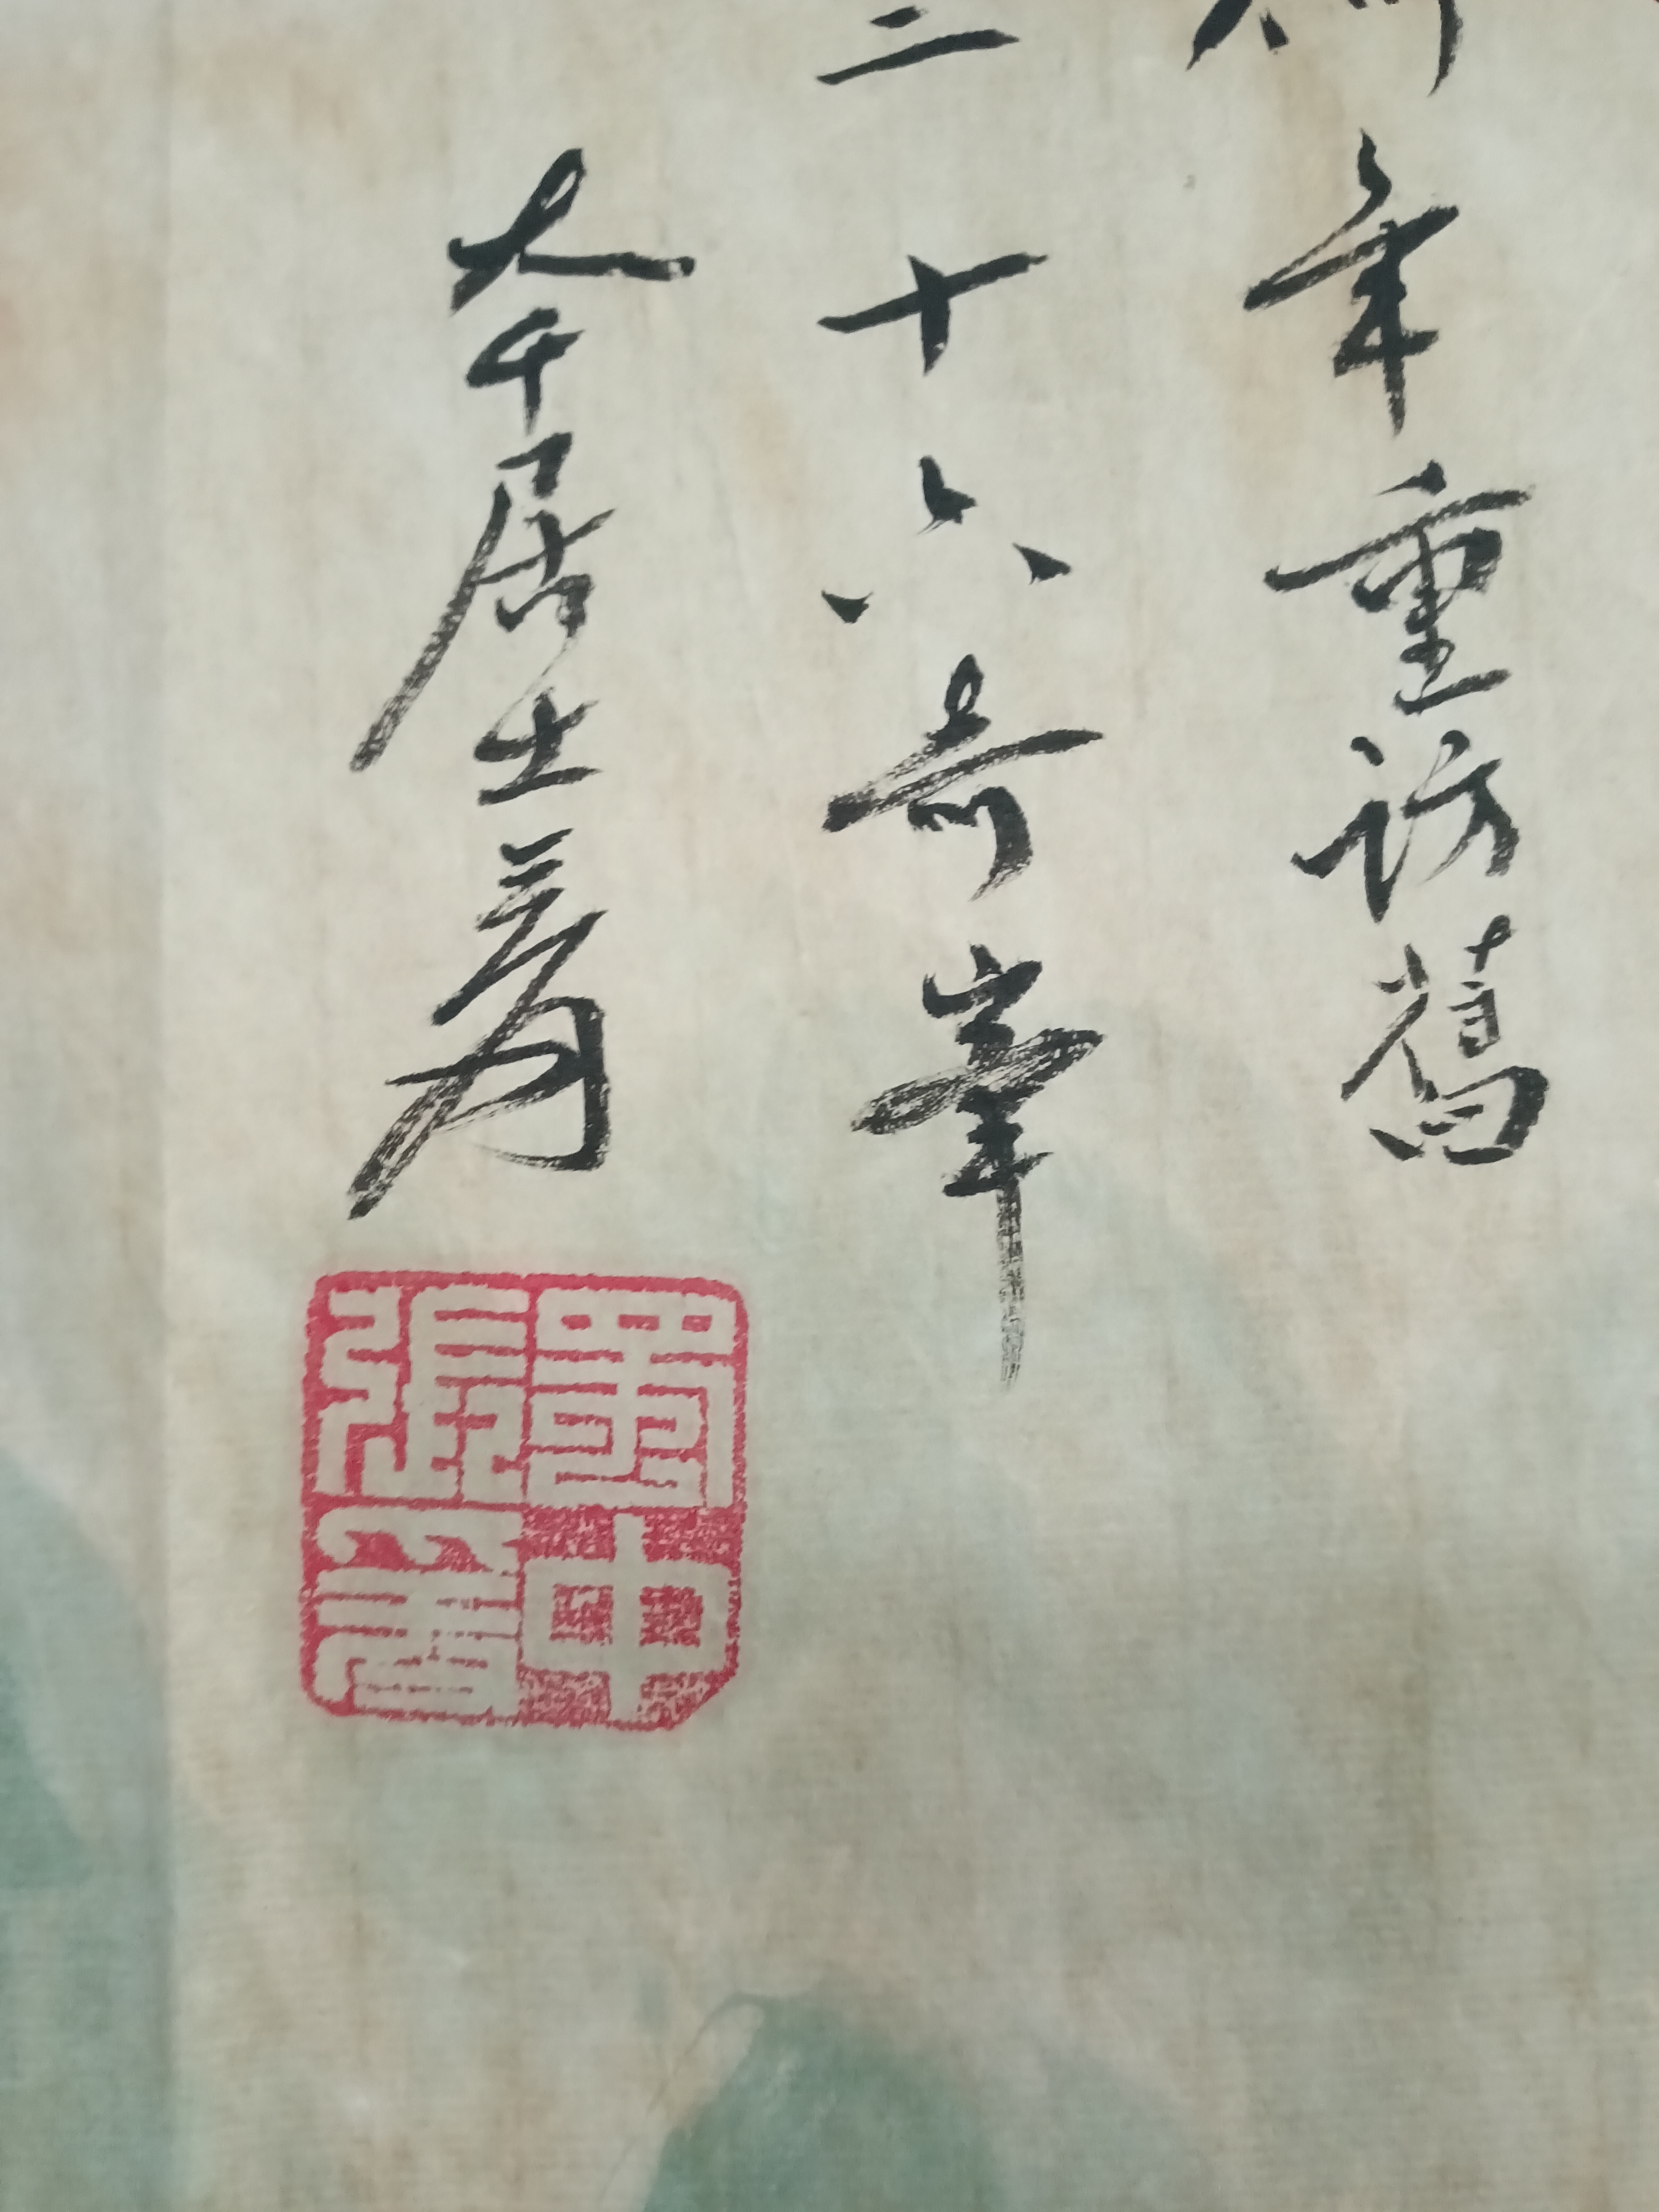 年重訪舊
二十六奇峯
大千居士爰
蜀中張爰